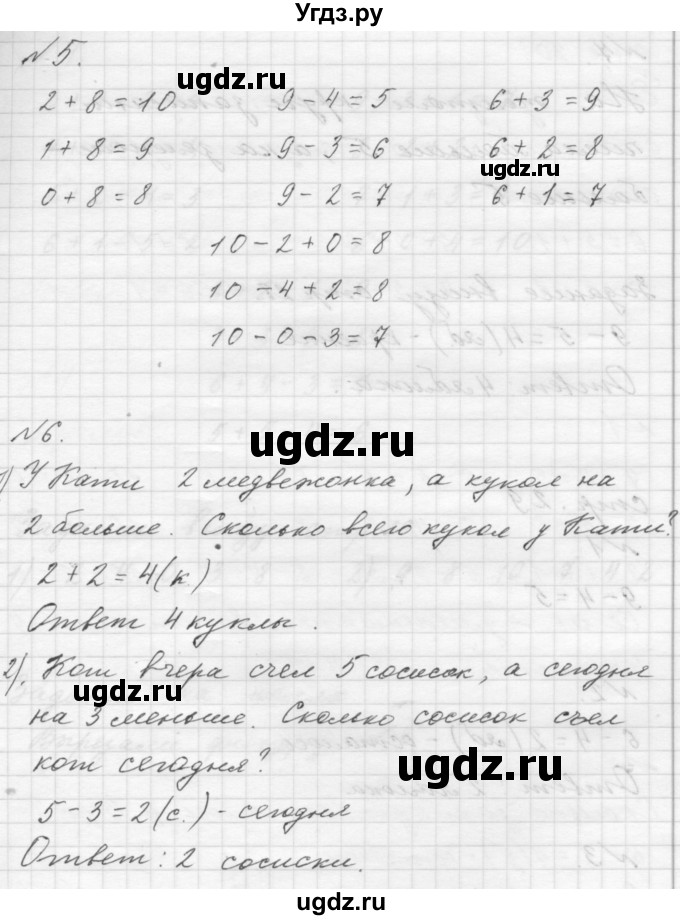 Угдз.ру
№5.
2+8=10 9-4=5 6+3=9
1+8=9 9-3=6 6+2=8
0+8=8 9-2=7 6+1=7
10-2+0=8
10-4+2=8
10-0-3=7
№6.
1) У Кати 2 медвежонка, а кукол на
2 больше. Сколько всего кукол у Кати?
2+2=4(к.)
Ответ 4 куклы.
2). Кот вчера съел 5 сосисок, а сегодня
на 3 меньше. Сколько сосисок съел
кот сегодня?
5-3=2(с.) - сегодня
Ответ: 2 сосиски.
ugdz.ru
ugdz.ru
ugdz.ru
ugdz.ru
ugdz.ru
ugdz.ru
ugdz.ru